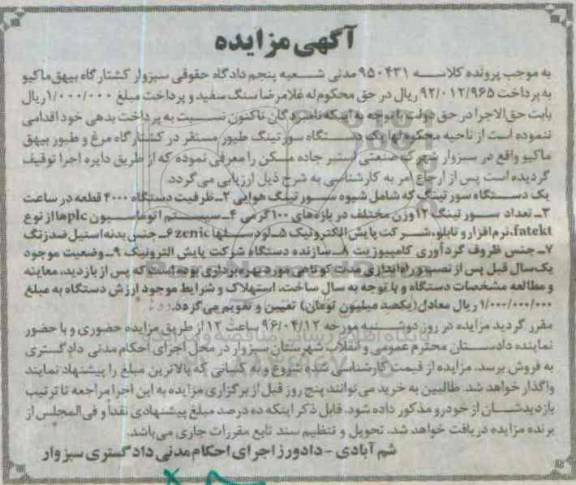 آگهی مزایده
به موجب پرونده کلاسه ۹۵۰۴۳۱ مدنی شعبه پنجم دادگاه حقوقی سبزوار کشتارگاه بیهق ماکیو
به پرداخت ۹۲/۰۱۲/۹۶۵ ریال در حق محکوم له غلامرضا سنگ سفید و پرداخت مبلغ ۱/۰۰۰/۰۰۰ ریال
بابت حق الاجرا در حق دولت با توجه به اینکه نامبردگان تاکنون نسبت به پرداخت بدهی خود اقدامی
ننموده است از ناحیه محکوم لها یک دستگاه سورتینگ طیور مستقر در کشتارگاه مرغ و طیور بیهق
ماکیو واقع در سبزوار شهرک صنعتی جاده مسکن را معرفی نموده که از طریق دایره اجرا توقیف
گردیده است پس از ارجاع امر به کارشناسی به شرح ذیل ارزیابی می گردد.
یک دستگاه سورتینگ که شامل شیوه سورتینگ هوایی ۲ـ ظرفیت دستگاه ۴۰۰۰ قطعه در ساعت
۳ـ تعداد سورتینگ ۱۲ وزن مختلف در بازه های ۱۰۰ گرمی ۴ـ سیستم اتوماسیون plcها از نوع
fatekt، نرم افزار و تابلو، شرکت پایش الکترونیک ۵ـ لودسلها zenic ۶ـ جنس بدنه استیل ضدزنگ
۷ـ جنس ظروف گردآوری کامپوزیت ۸ـ سازنده دستگاه شرکت پایش الترونیک ۹ـ وضعیت موجود
یک سال قبل پس از نصب و راه اندازی مدت کوتاهی مورد بهره برداری بوده است که پس از بازدید، معاینه
و مطالعه مشخصات دستگاه و با توجه به سال ساخت، استهلاک و شرایط موجود ارزش دستگاه به مبلغ
۱/۰۰۰/۰۰۰/۰۰۰ ریال معادل (یکصد میلیون تومان) تعیین و تقویم می گردد.
مقرر گردید مزایده در روز دوشنبه مورخه ۹۶/۰۴/۱۲ ساعت ۱۲ از طریق مزایده حضوری و با حضور
نماینده دادستان محترم عمومی و انقلاب شهرستان سبزوار در محل اجرای احکام مدنی دادگستری
به فروش برسد. مزایده از قیمت کارشناسی شده شروع و به کسانی که بالاترین مبلغ را پیشنهاد نمایند
واگذار خواهد شد. طالبین به خرید می توانند پنج روز قبل از برگزاری مزایده به این اجرا مراجعه تا ترتیب
بازدیدشان از خودرو مذکور داده شود. قابل ذکر اینکه ده درصد مبلغ پیشنهادی نقداً و فی المجلس از
برنده مزایده دریافت خواهد شد. تحویل و تنظیم سند تابع مقررات جاری می باشد.
شم آبادی - دادورز اجرای احکام مدنی دادگستری سبزوار